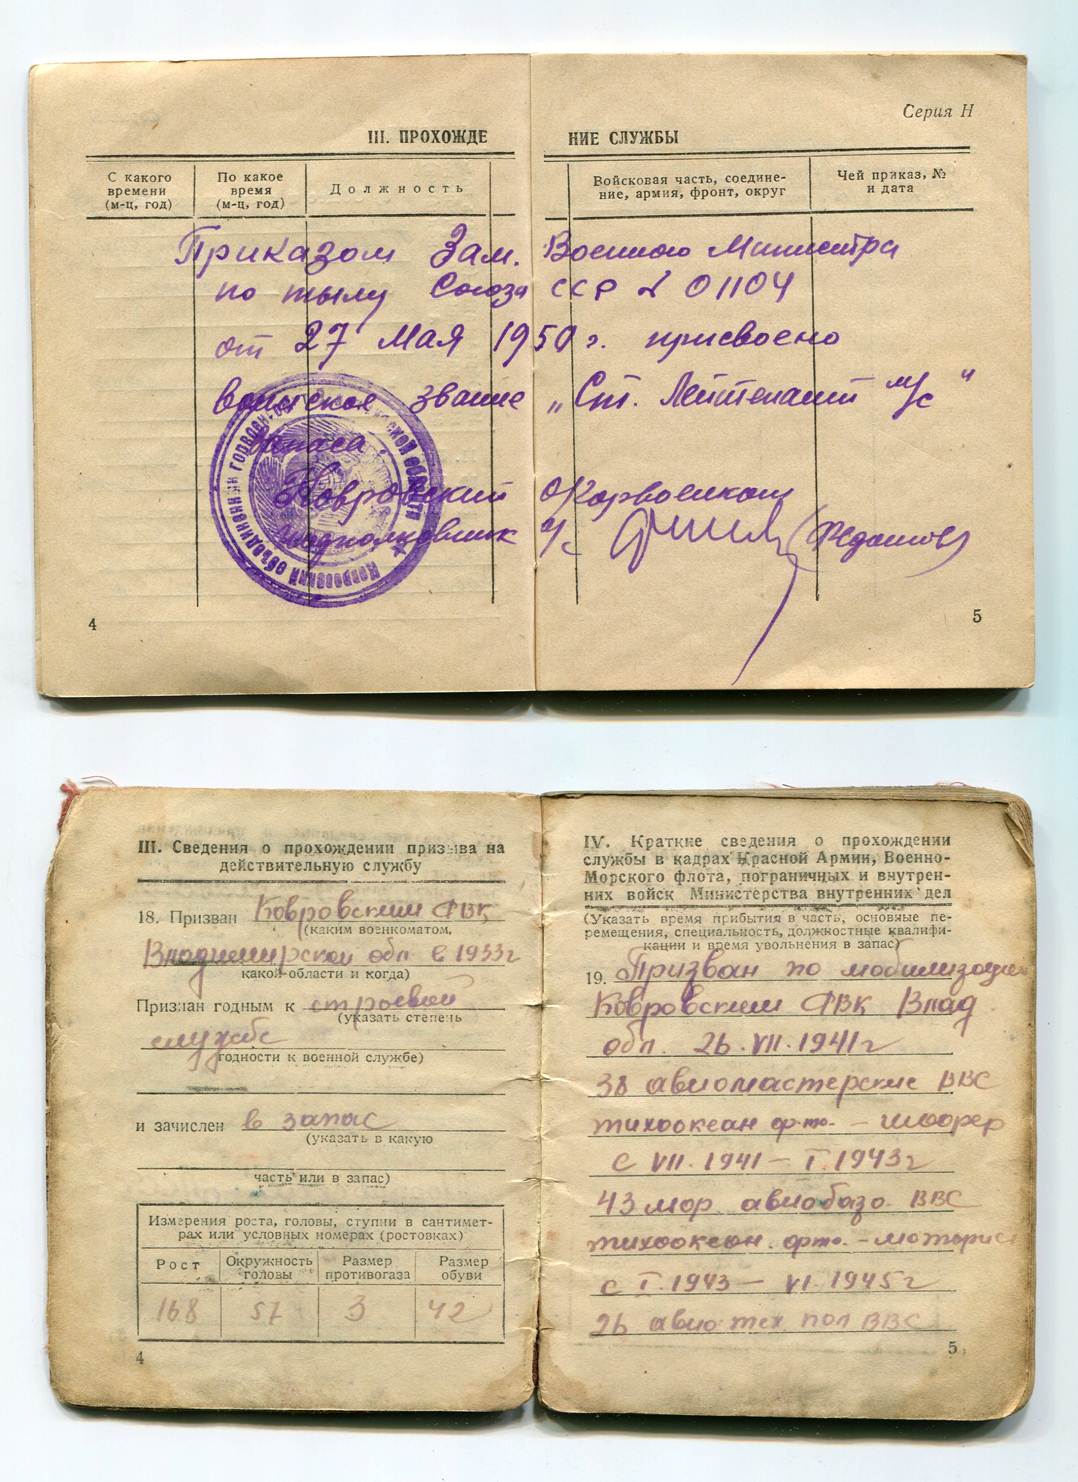 Серия Н
III. ПРОХОЖДЕНИЕ СЛУЖБЫ
С какого времени (м-ц, год)
По какое время (м-ц, год)
Должность
Войсковая часть, соедине-
ние, армия, фронт, округ
Чей приказ, №
и дата
Приказом Зам. Военного Министра
по тылу Союза ССР № 01104
от 27 Мая 1950 г. присвоено
воинское звание „Ст. Лейтенант м/с"
запаса.
Ковровский Горвоенком
подполковник
4
5
III. Сведения о прохождении призыва на
действительную службу
18. Призван Ковровским ФВК
(каким военкоматом,
Владимирской обл в 1933г
какой области и когда)
Признан годным к строевой
(указать степень
службе
годности к военной службе)
и зачислен в запас
(указать в какую
часть или в запас)
Измерения роста, головы, ступни в сантимет-
рах или условных номерах (ростовках)
Рост
Окружность головы
Размер противогаза
Размер обуви
168 57 3 42
4
IV. Краткие сведения о прохождении
службы в кадрах Красной Армии, Военно-
Морского флота, пограничных и внутрен-
них войск Министерства внутренних дел
(Указать время прибытия в часть, основные пе-
ремещения, специальность, должностные квалифи-
кации и время увольнения в запас)
19. Призван по мобилизации
Ковровским ФВК Влад
обл. 26.VII.1941г
38 авиомастерские ВВС
тихоокеан ф-та - шофер
с VII.1941 — I.1943г
43 мор. авиобаза ВВС
тихоокеан. ф-та. - моторист
с I.1943 — VI.1945г
26 авио. тех пол ВВС
5